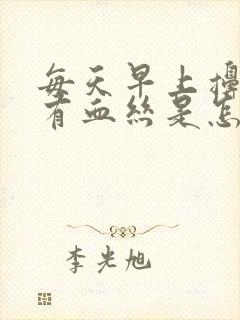 每天早上擤
有血丝是怎
李光旭